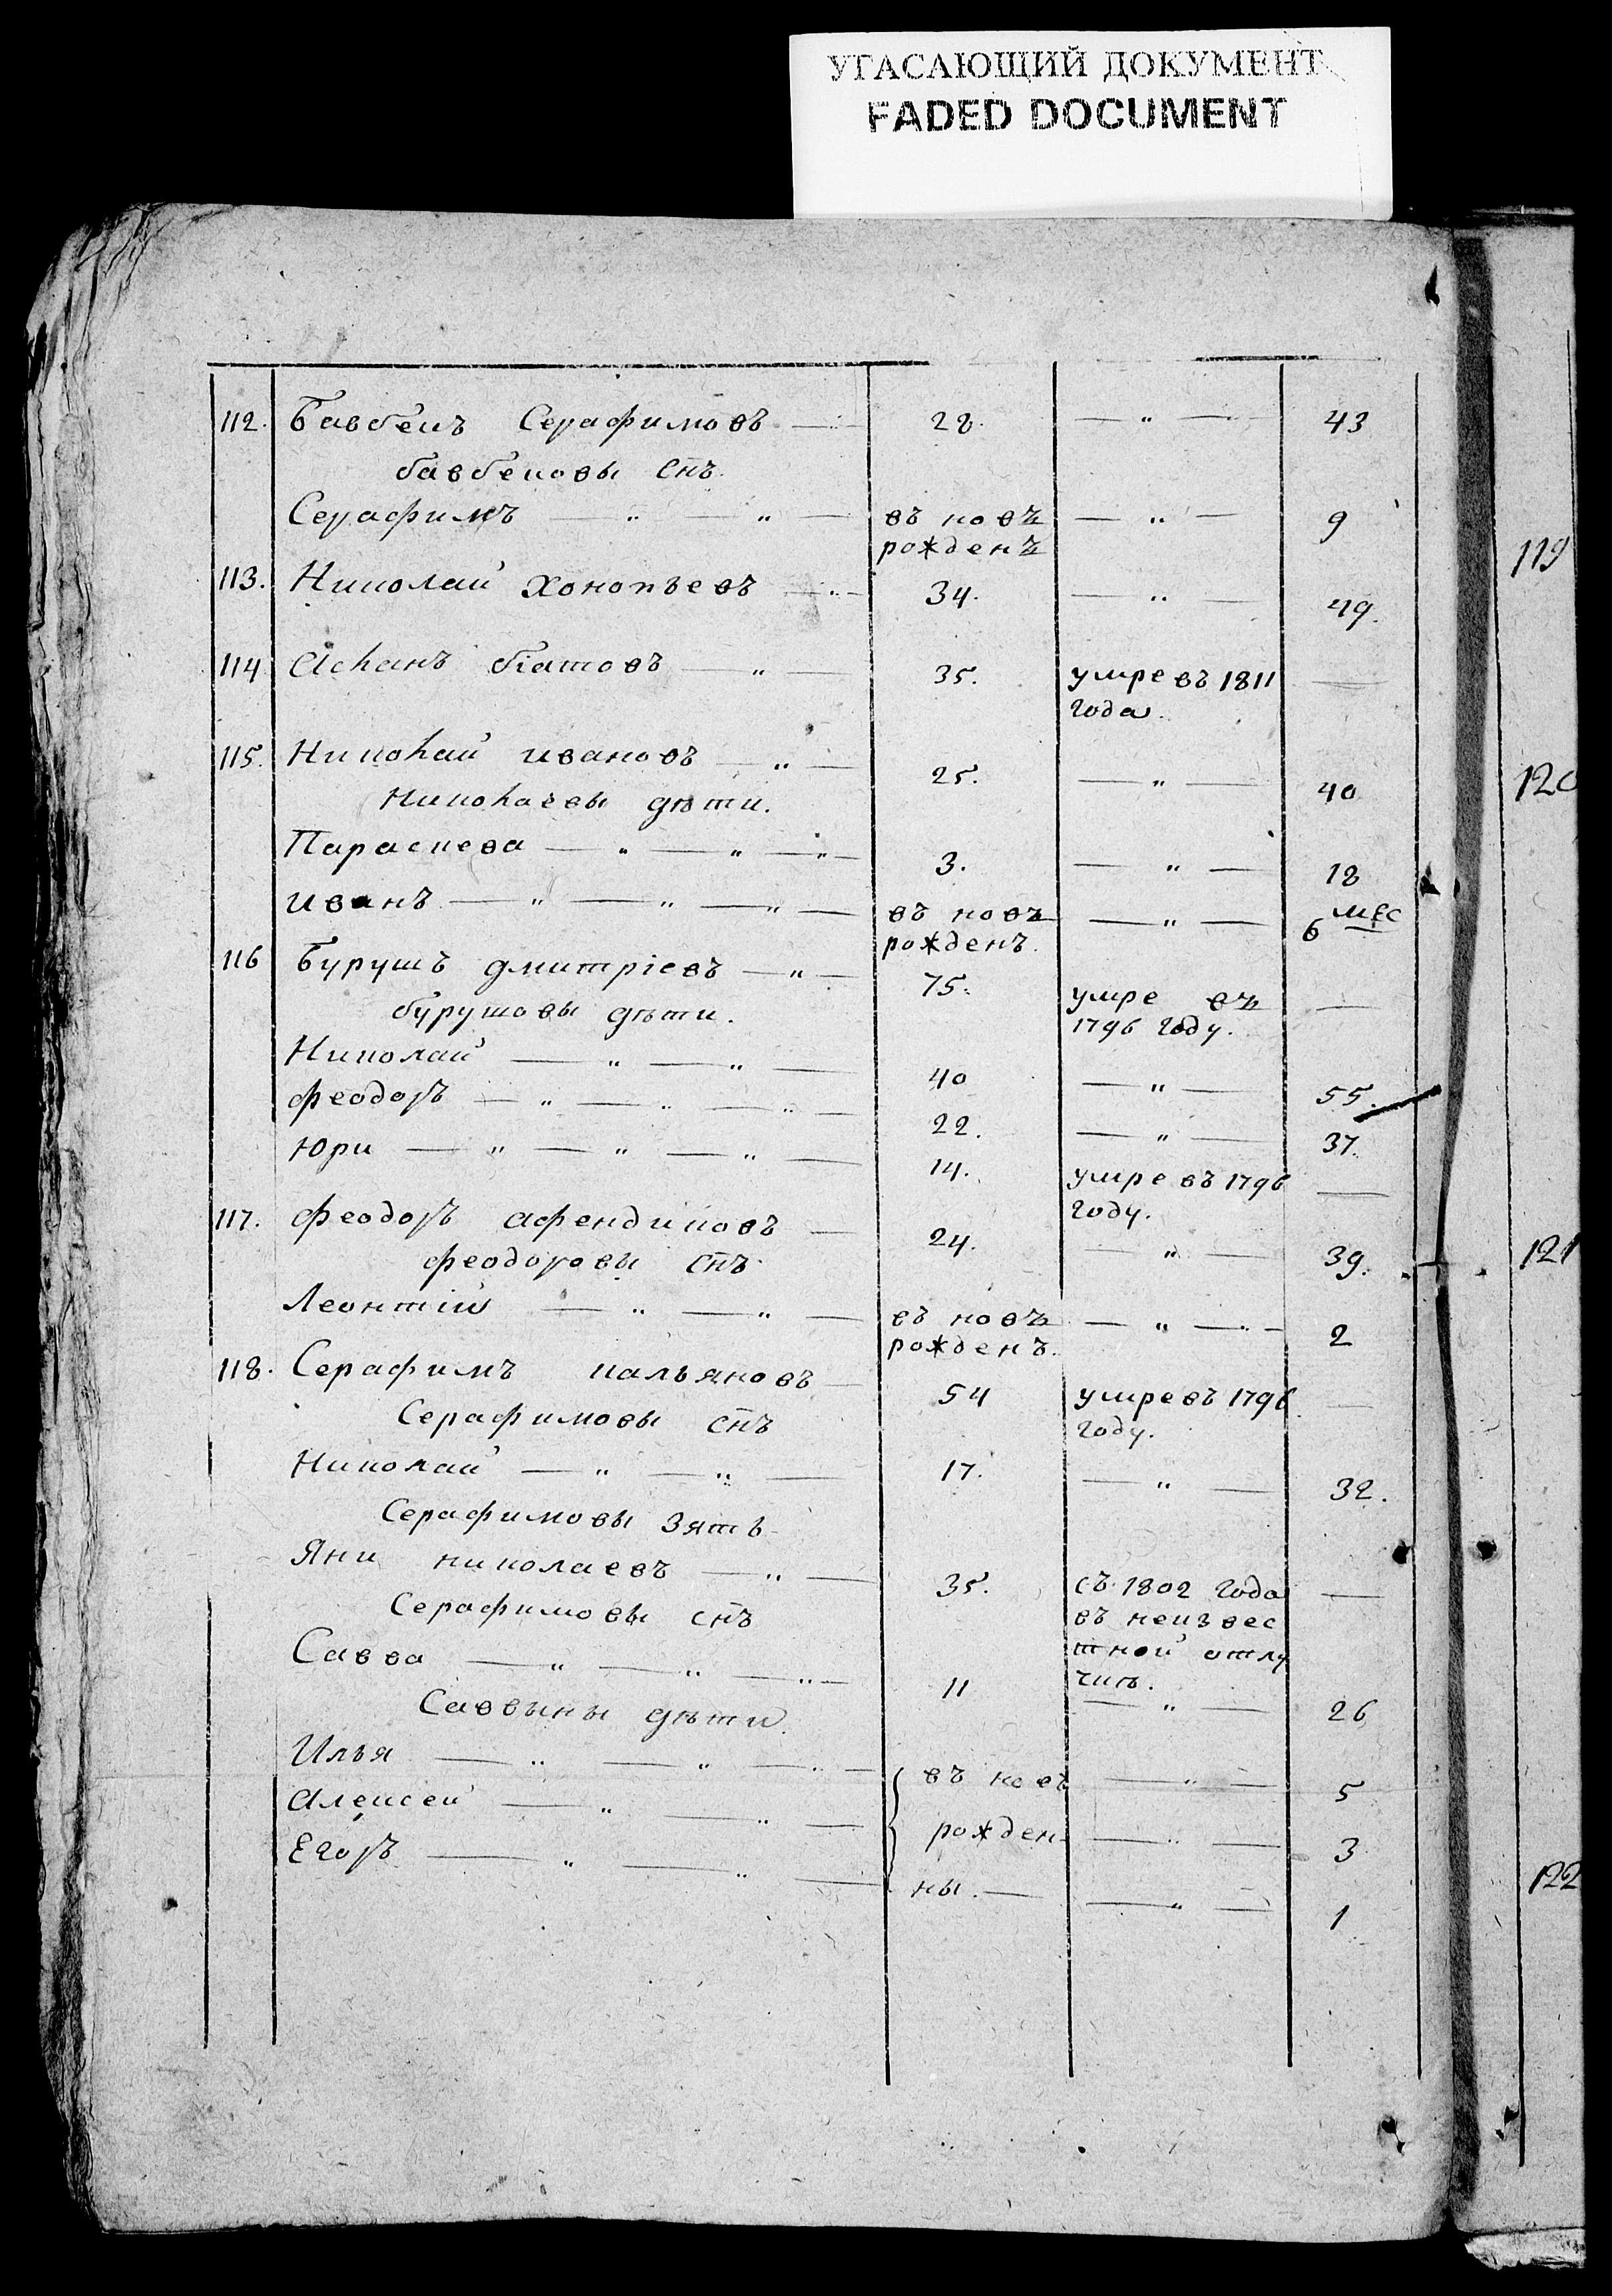 УГАСАЮЩИЙ ДОКУМЕНТ
FADED DOCUMENT
112. Бавбекъ Серафимовъ — 28. — „ — 43
бавбековы снъ.
Серафимъ — „ — „ — въ новъ — „ — 9
рожденъ
113. Николай Хонопьевъ — „ — 34. — „ — 49.
114 Асланъ біатовъ — „ — 35. умре въ 1811 —
года.
115. Николай ивановъ — „ — 25. — „ — 40
Николаевы дѣти.
Параскева — „ — „ — „ — 3. — „ — 18
иванъ — „ — „ — „ — въ новъ — „ — 6 мѣс
рожденъ.
116 Бурушъ дмитріевъ — „ — 75. умре въ —
бурушовы дѣти. 1796 году.
Николай — „ — „ — 40 — „ — 55.
феодоръ — „ — „ — „ — 22. — „ — 37.
Юри — „ — „ — „ — 14. умре въ 1796 —
году.
117. феодоръ афендиковъ — 24. — „ — 39.
феодоровы снъ.
Леонтій — „ — „ — въ новъ — „ — „ — 2
рожденъ.
118. Серафимъ кальяновъ — 54 умре въ 1796 —
Серафимовы снъ году.
Николай — „ — „ — 17. — „ — 32.
Серафимовы Зять
Яни николаевъ — „ — 35. съ 1802 года —
Серафимовы снъ въ неизвес
Савва — „ — „ — „ — 11 тной отлу
чкѣ.
Саввины дѣти. — „ — 26
Илья — „ — „ — „ — въ новъ — „ — 5
Алексей — „ — „ — рожден — „ — 3
Егоръ — „ — „ — ны. — — „ — 1
119
120
121
122